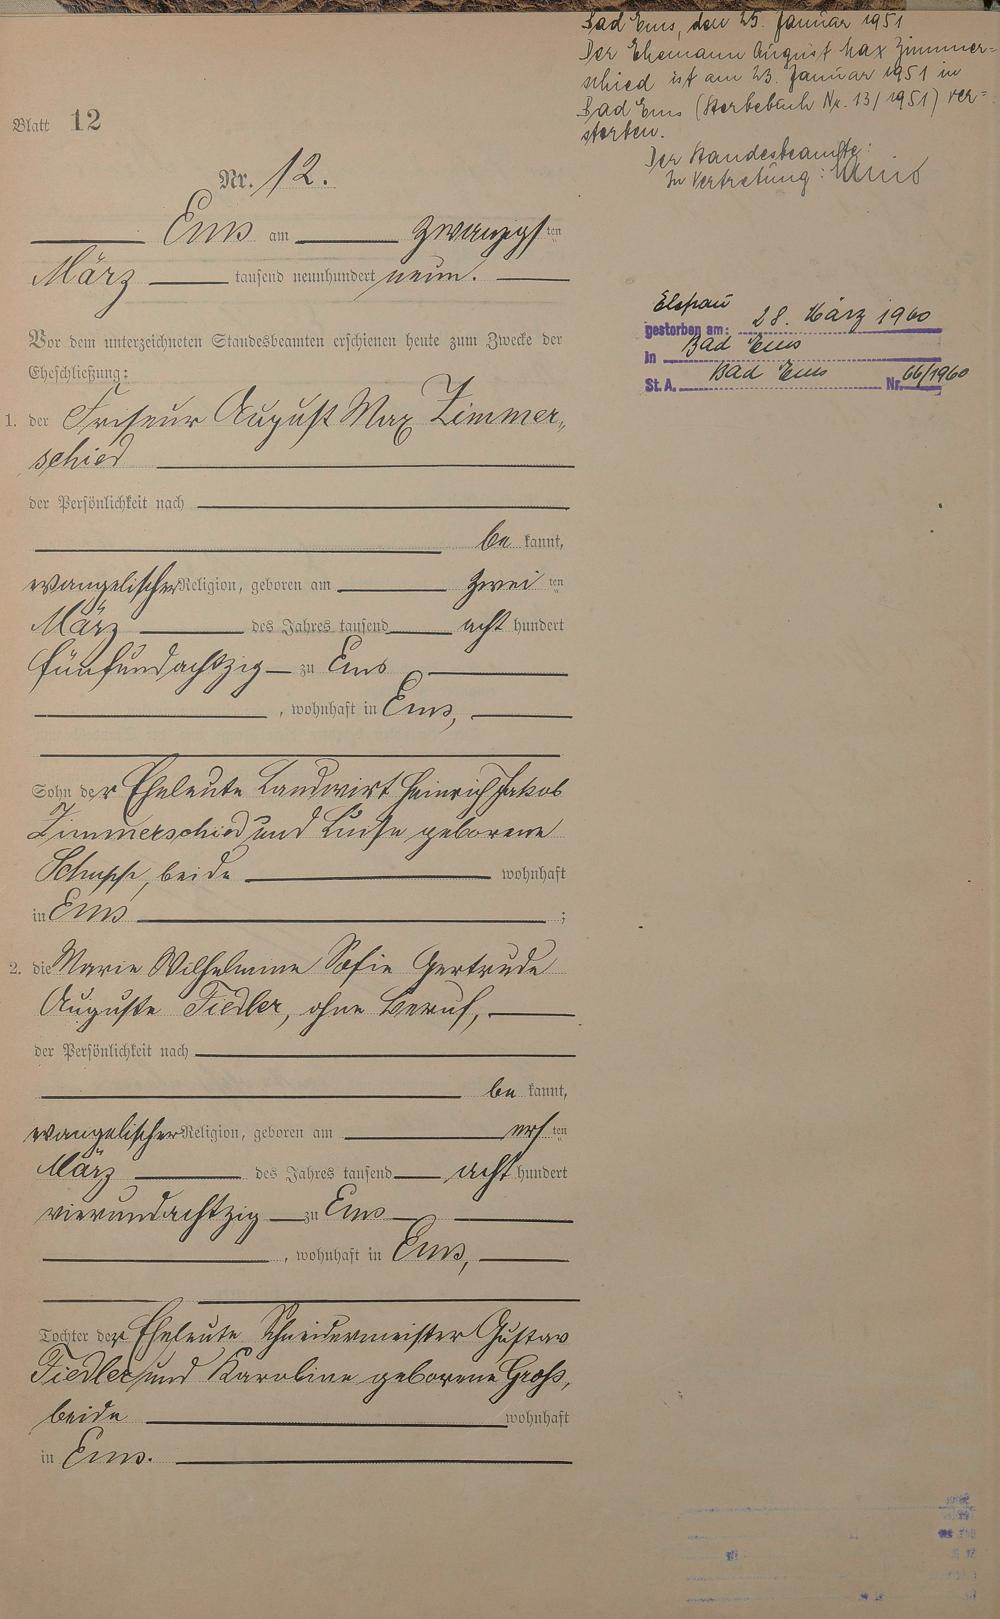 Bad Ems, den 25. Januar 1951
Der Ehemann August Max Zimmer=
schied ist am 23. Januar 1951 in
Bad Ems (Sterbebuch Nr. 13/1951) ver=
storben.
Der Standesbeamte:
In Vertretung:
Blatt 12
Nr. 12.
Ems am zwanzigsten
März tausend neunhundert neun.
Vor dem unterzeichneten Standesbeamten erschienen heute zum Zwecke der
Eheschließung:
1. der Friseur August Max Zimmer=
schied
der Persönlichkeit nach
be kannt,
evangelischer Religion, geboren am zweiten
März des Jahres tausend acht hundert
fünfundachtzig zu Ems
, wohnhaft in Ems,
Sohn der Eheleute Landwirt Heinrich Jakob
Zimmerschied und Luise geborene
beide wohnhaft
in Ems ;
2. die Marie Wilhelmine Sofie Gertrude
Auguste Fiedler, ohne Beruf,
der Persönlichkeit nach
be kannt,
evangelischer Religion, geboren am ersten
März des Jahres tausend acht hundert
vierundachtzig zu Ems
, wohnhaft in Ems,
Tochter der Eheleute Schneidermeister Gustav
Fiedler und Karoline geborene Groß,
beide wohnhaft
in Ems.
Ehefrau
gestorben am: 28. März 1960
in Bad Ems
St. A. Bad Ems Nr. 66/1960